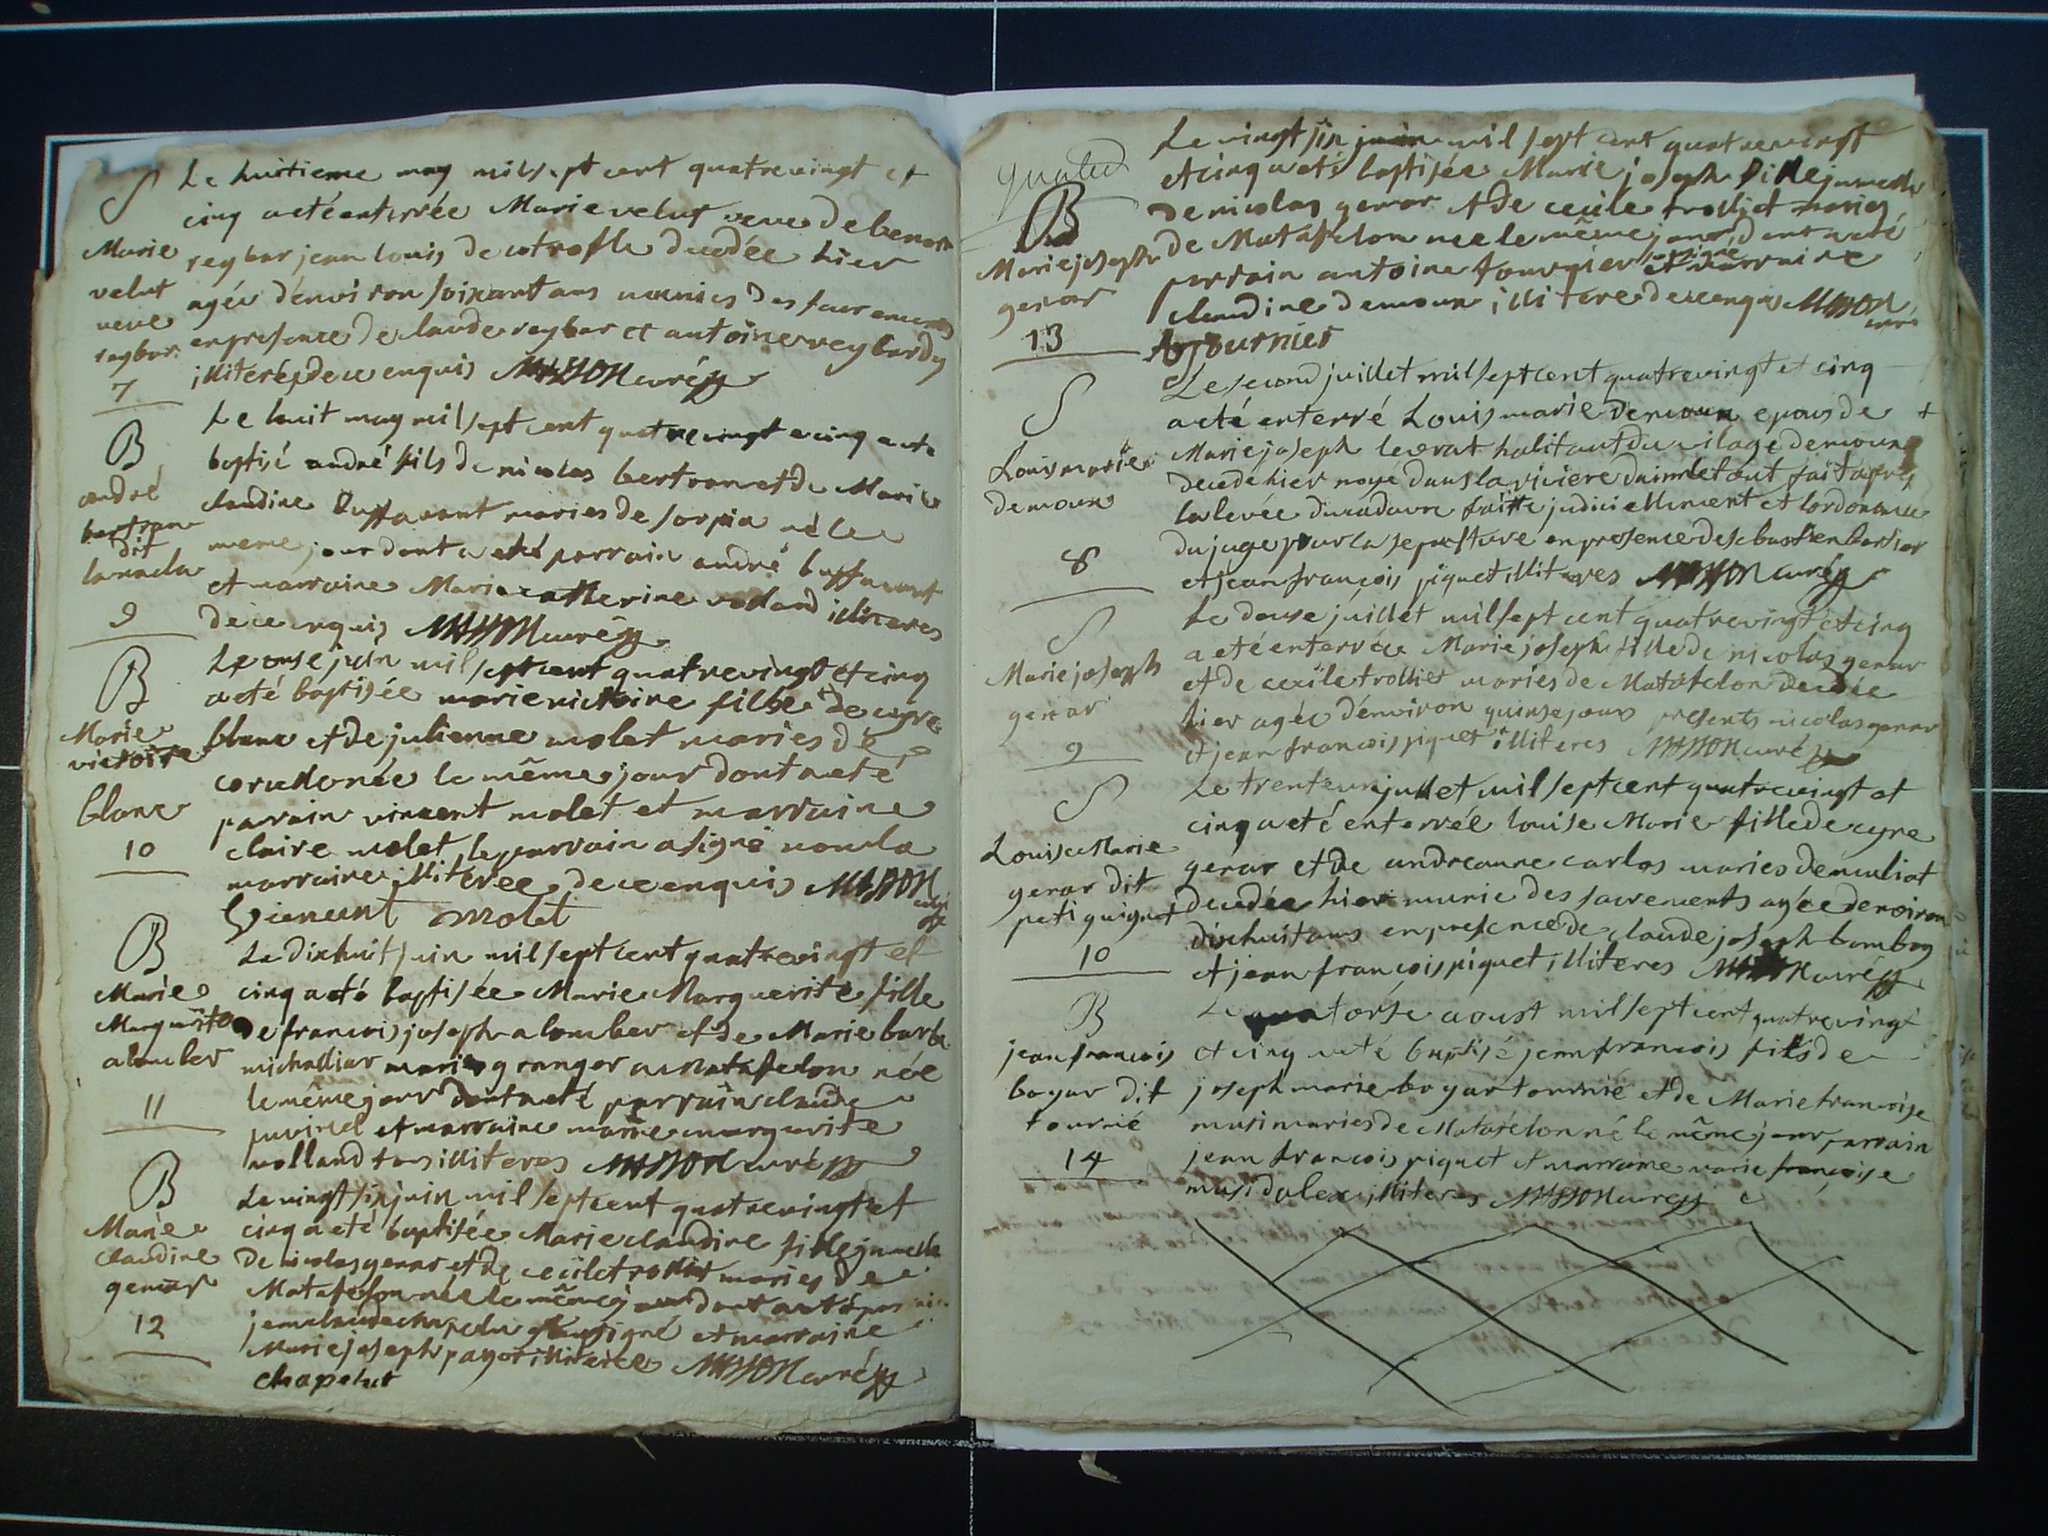 S
Marie
velut
veuve
reybar
7
Le huitieme may mil sept cent quatrevingt et
cinq a eté enterrée Marie velut veuve de benoit
reybar jean louis de cotrofle decedée hier
agée d'environ soixant ans munies des sacrements
en presence de claude reybar et antoine reybar du
illiterés de ce enquis MASSON curé
B
andré
bertran
dit
lanada
9
Le huit may mil sept cent quatrevingt et cinq a ete
baptisé andré fils de nicolas bertran et de Marie
claudine buffavant maries de sorpia né le
meme jour dont a eté parrain andré buffavant
et marraine Marie catherine volland illiteres
de ce enquis MASSON curé
B
Marie
victoire
blanc
10
Le onse juin mil sept cent quatrevingt et cinq
a eté baptisée marie victoire fille de cyre
blanc et de julienne molet maries de
corcelle née le même jour dont a eté
parain vincent molet et marraine
claire molet le parrain a signé non la
marraine illiteree de ce enquis MASSON curé
Vicenent molet
B
Marie
Marguerite
alomber
11
Le dixhuit juin mil sept cent quatrevingt et
cinq a eté baptisée Marie Marguerite fille
de francois joseph alomber et de Marie barbe
michallior maries granger a Matafelon née
le même jour dont a eté parrain claude
juvinel et marraine marie marguerite
volland tous illiteres MASSON curé
B
Marie
claudine
genar
12
Le vingt six juin mil sept cent quatrevingt et
cinq a eté baptisée Marie claudine fille jumelle
de nicolas genar et de cecile trolliet maries de
Matafelon née le même jour dont a eté parrain
jean claude chapelu soussigné et marraine
Marie joseph payot illiteree MASSON curé
chapelut
B
Marie joseph
genar
13
Le vingt six juin mil sept cent quatrevingt
et cinq a eté baptisée Marie joseph fille jumelle
de nicolas genar et de cecile trolliet maries
de Matafelon née le même jour dont a eté
parrain antoine fournier soussigné et marraine
claudine demoux illiteree de ce enquis MASSON curé
fournier
S
Louis marie
demoux
8
Le second juillet mil sept cent quatrevingt et cinq
a eté enterré Louis marie demoux epous de
Marie joseph levrat habitant du vilage demoux
decedé hier noyé dans la riviere dain le tout fait apres
la levée du cadavre faitte judiciellement et lordonance
du juge pour la sepulture en presence de sebastien berlier
et jean françois piquet illiteres MASSON curé
S
Marie joseph
genar
9
Le douse juillet mil sept cent quatrevingt et cinq
a eté enterrée Marie joseph fille de nicolas genar
et de cecile trolliet maries de Matafelon decedée
hier agée d'environ quinse jours presents nicolas genar
et jean francois piquet illiteres MASSON curé
S
Louise Marie
gerar dit
peti guignet
10
Le trente un juillet mil sept cent quatrevingt et
cinq a eté enterrée louise Marie fille de cyre
gerar et de andreanne carlas maries de muliat
decedée hier munie des sacrements agée denviron
dixhuit ans en presence de claude joseph bombay
et jean françois piquet illiteres MASSON curé
B
jean francois
boyar dit
tournié
14
Le quatorse aoust mil sept cent quatrevingt
et cinq a eté baptisé jean francois fils de
joseph marie boyar tournié et de Marie francoise
musi maries de Matafelon né le même jour parrain
jean francois piquet et marraine marie françoise
musi dalex illiteres MASSON curé